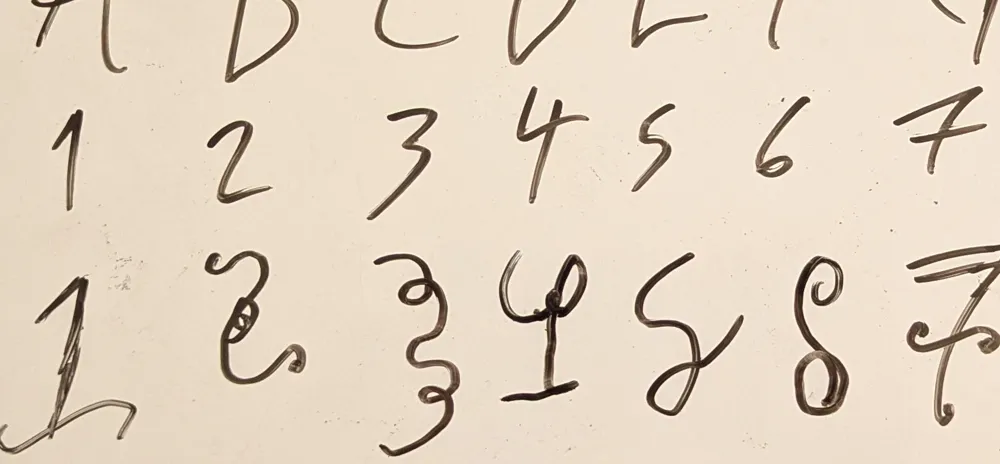 A B C D E F
1 2 3 4 5 6 7
1 2 3 4 5 6 7